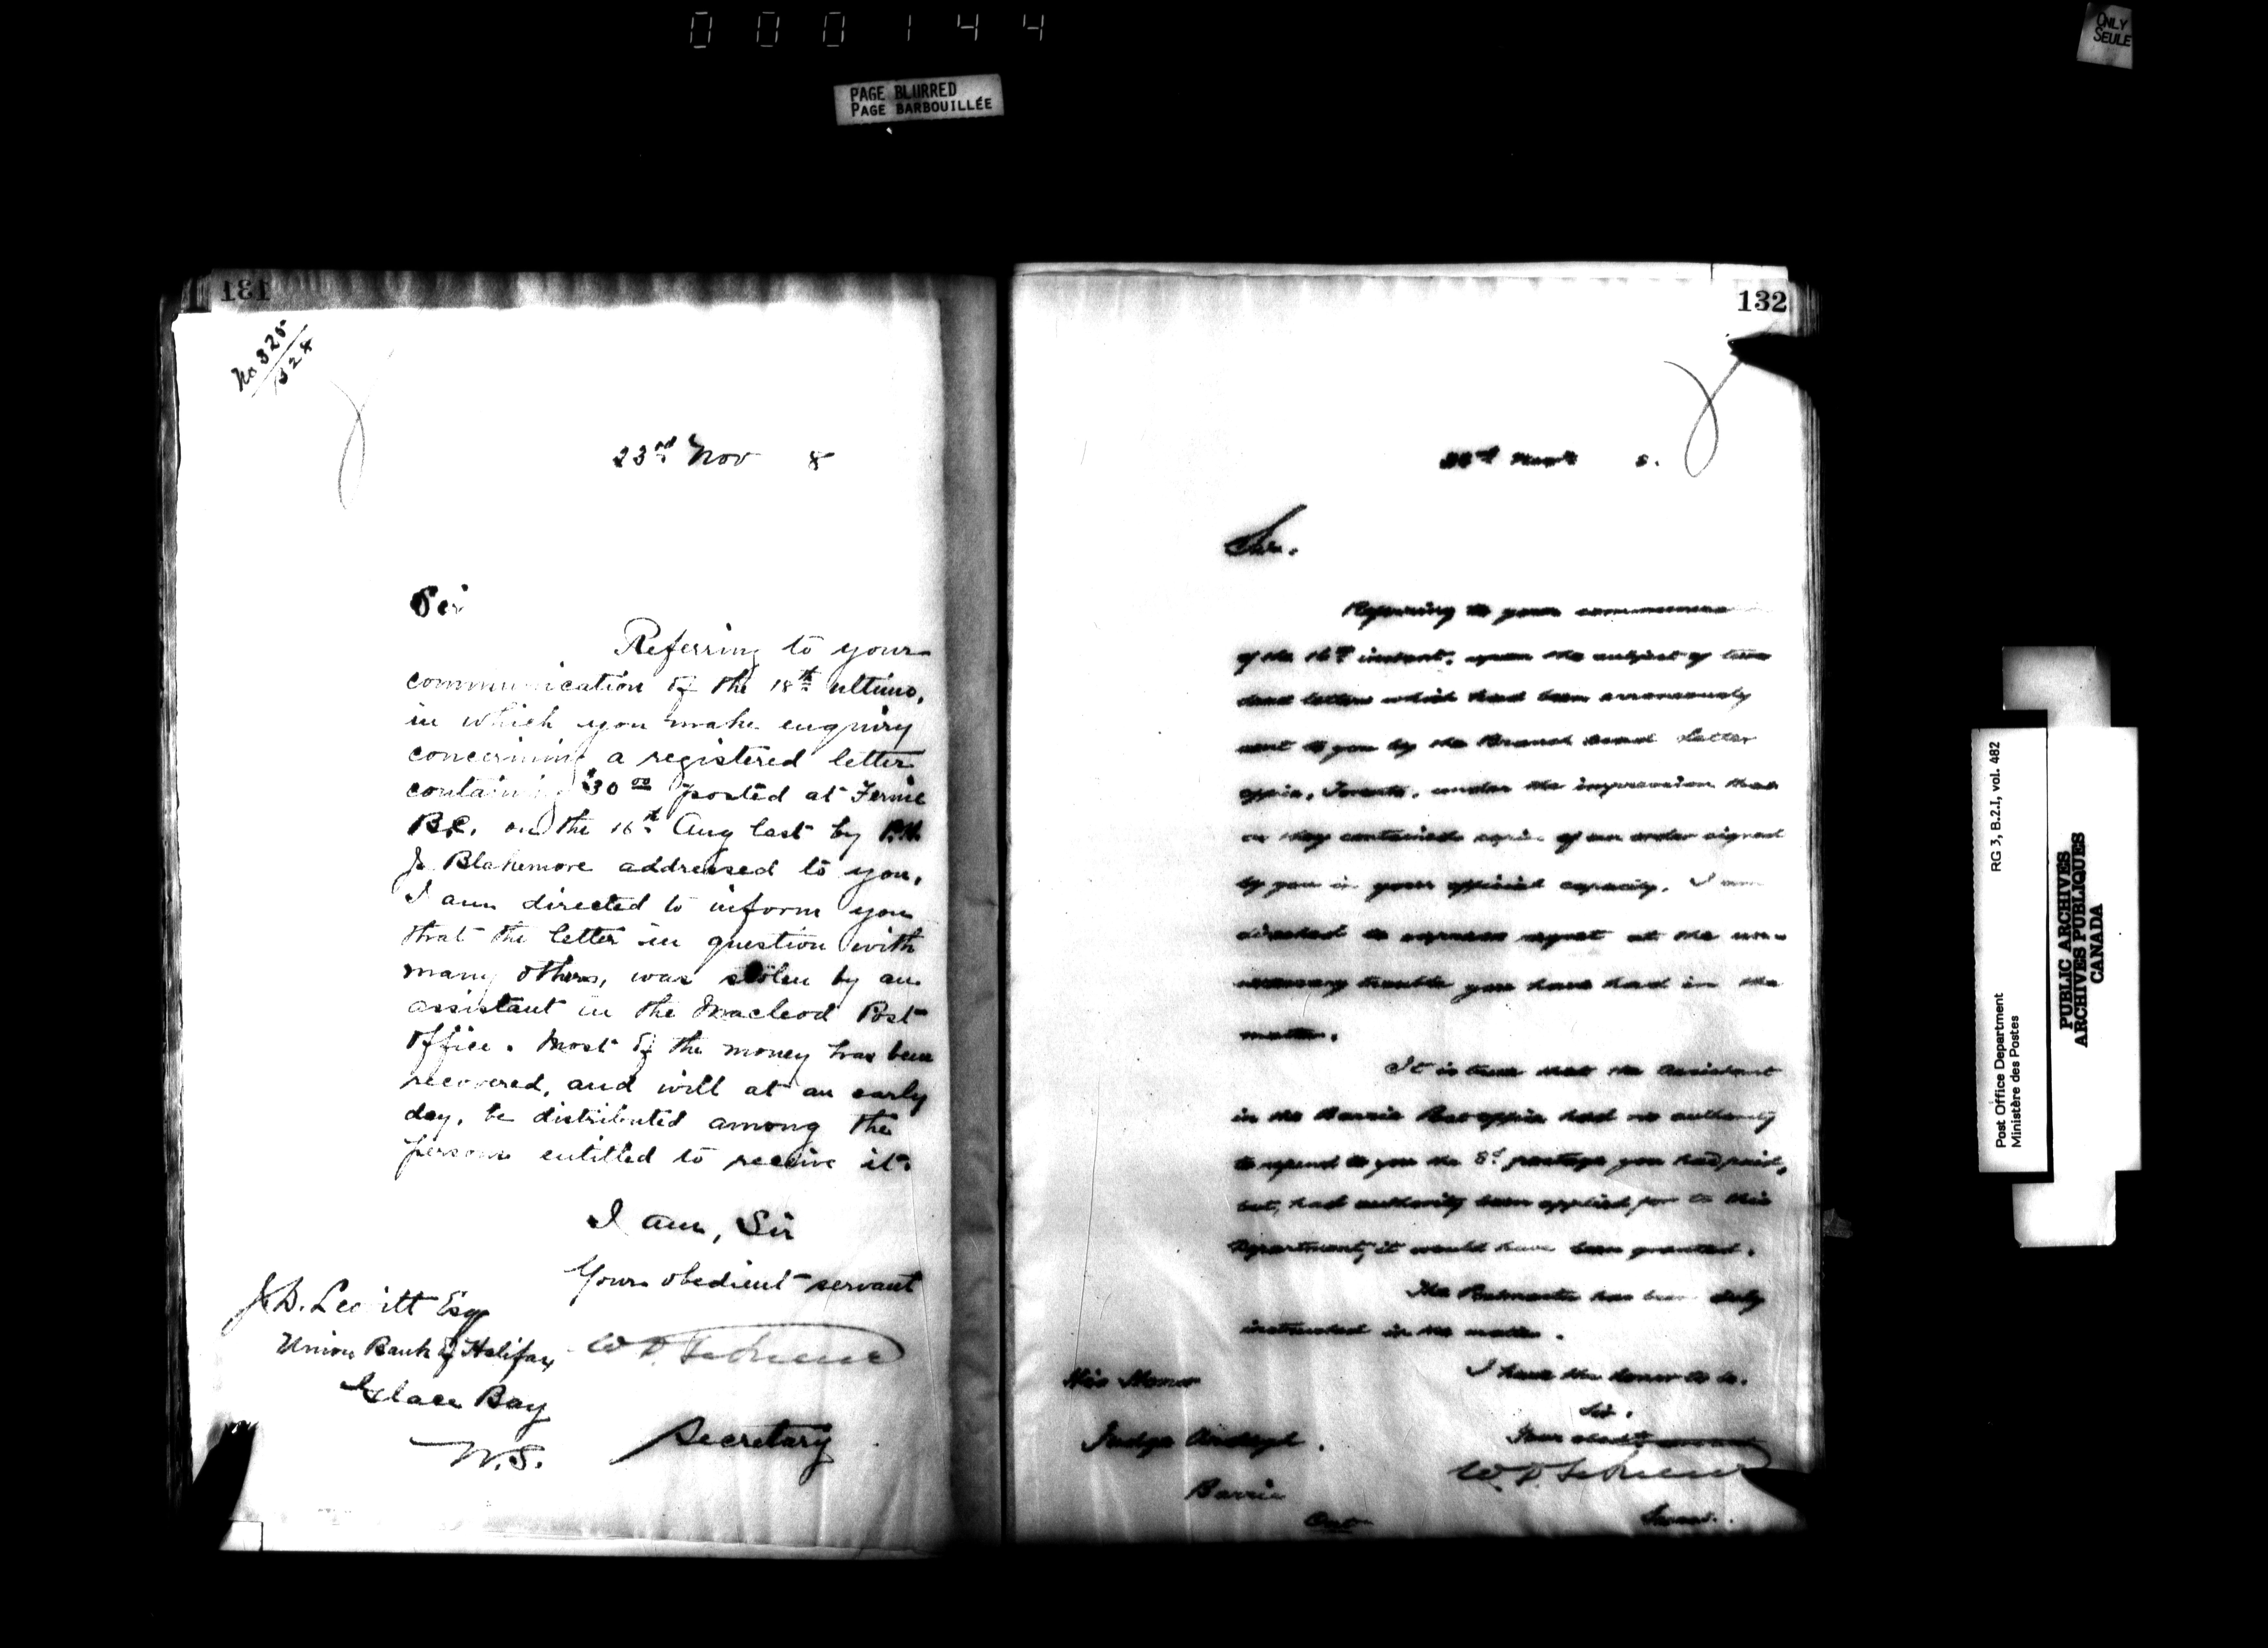 000144
PAGE BLURRED
PAGE BARBOUILLÉE
ONLY
SEULE
131
No 325
1328
23rd Nov 8
Sir
Referring to your
communication of the 18th ultimo,
in which you make enquiry
concerning a registered letter
containing $30 00 posted at Fernie
B.C. on the 16th Aug last by
Blakemore addressed to you,
I am directed to inform you
that the letter in question with
many others, was stolen by an
assistant in the Macleod Post
Office. Most of the money has been
recovered, and will at an early
day, be distributed among the
persons entitled to receive it.
I am, Sir
Your obedient servant
J.D. Leavitt Esq
Union Bank of Halifax
Glace Bay
N.S.
Secretary
132
Nov 8.
Sir.
Referring to your
of the 16th instant, upon the subject of two
dead letters which had been erroneously
sent to you by the Branch Dead Letter
Office, Toronto, under the impression that
they contained copies of an order signed
by you in your official capacity, I am
directed to express regret at the un-
necessary trouble you have had in the
matter.
It is true that the Assistant
in the Barrie Post office had no authority
to refund to you the 8c postage you had paid,
but, had authority been applied for to this
Department, it would have been granted.
The Postmaster has been duly
instructed in the matter.
I have the honor to be.
Sir,
Your obedt servant
His Honor
Judge
Barrie
Ont
Post Office Department
Ministère des Postes
RG 3, B.2.I, vol. 482
PUBLIC ARCHIVES
ARCHIVES PUBLIQUES
CANADA